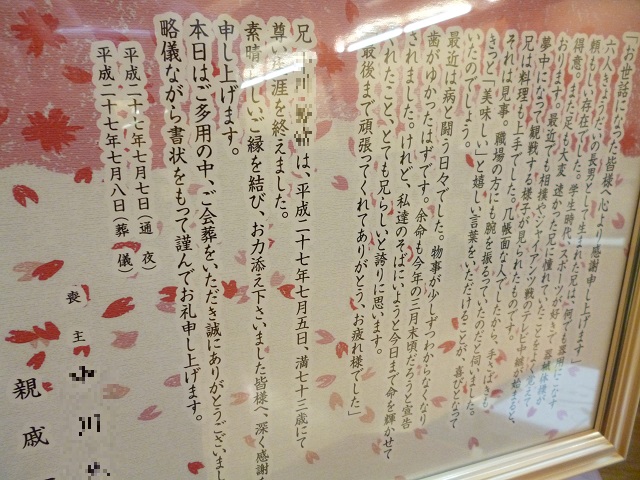 「お世話になった皆様へ心より感謝申し上げます」
六人きょうだいの長男として生まれた兄は、何でも器用にこなす
頼もしい存在でした。学生時代、スポーツが好きで器械体操が
得意。また足も大変速かった兄に憧れていたことをよく覚えて
おります。最近でも相撲やジャイアンツ戦のテレビ中継が始まると、
夢中になって観戦する様子が見られたものです。
兄は料理も上手でした。几帳面な人でしたから、手さばきも
それは見事。職場の方にも腕を振るっていたのだと伺いました。
きっと「美味しい」と嬉しい言葉をいただけることが、喜びとなって
いたのでしょう。
最近は病と闘う日々でした。物事が少しずつわからなくなり
歯がゆかったはずです。余命も今年の三月末頃だろうと宣告
されました。けれど、私達のそばにいようと今日まで命を輝かせて
くれたこと、とても兄らしいと誇りに思います。
「最後まで頑張ってくれてありがとう、お疲れ様でした」
兄 は、平成二十七年七月五日、満七十三歳にて
尊い生涯を終えました。
素晴らしいご縁を結び、お力添え下さいました皆様へ、深く感謝
申し上げます。
本日はご多用の中、ご会葬をいただき誠にありがとうございまし
略儀ながら書状をもって謹んでお礼申し上げます。
平成二十七年七月七日(通夜)
平成二十七年七月八日(葬儀)
喪主 小川
親戚